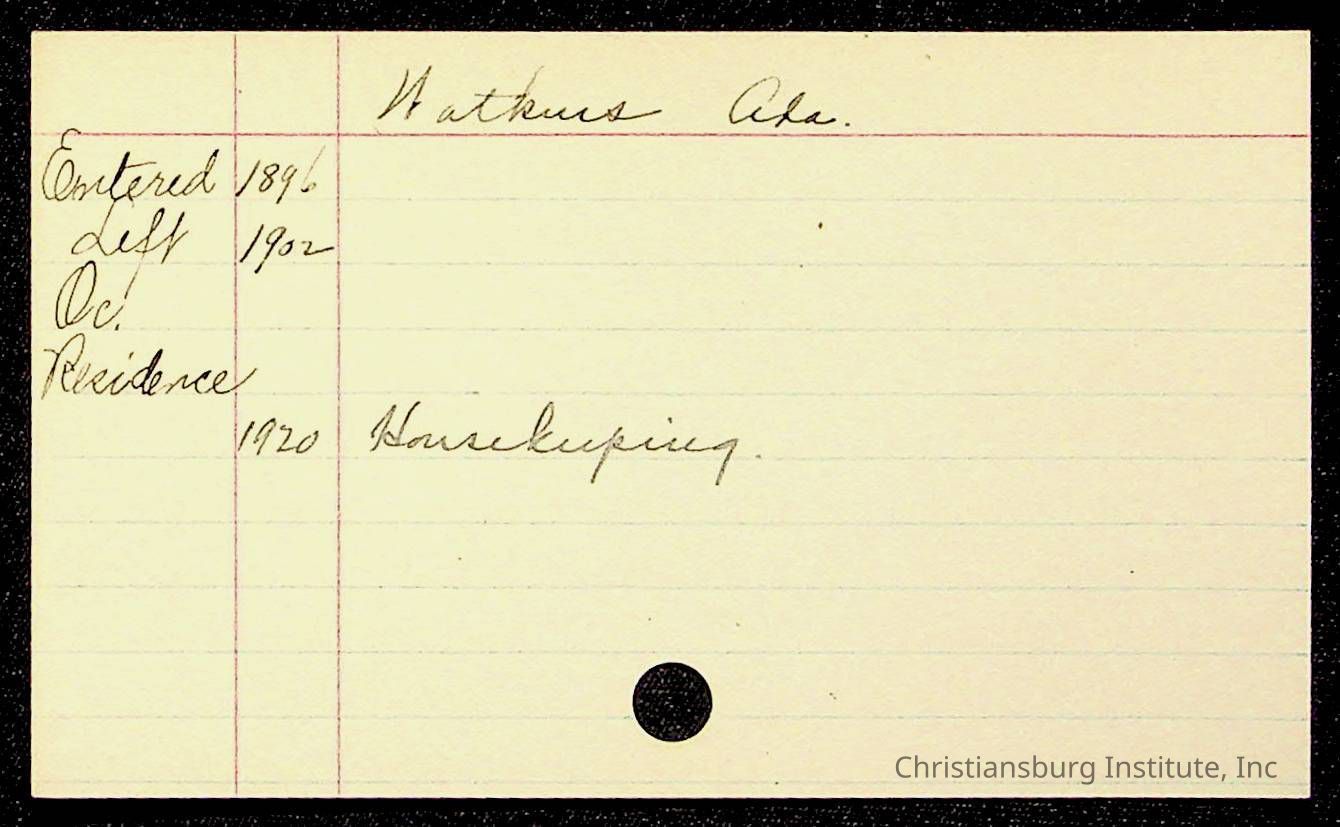 Watkins Ada.
Entered 1896
Left 1902
Oc.
Residence
1920 Housekeeping.
Christiansburg Institute, Inc